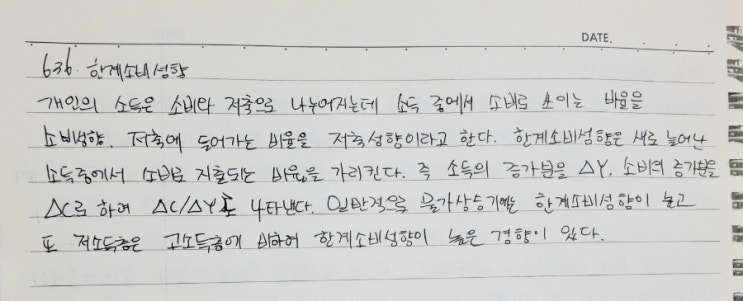 DATE.
636. 한계소비성향
개인의 소득은 소비와 저축으로 나누어지는데 소득 중에서 소비로 쓰이는 비율을
소비성향. 저축에 들어가는 비율을 저축성향이라고 한다. 한계소비성향은 새로 늘어난
소득중에서 소비로 지출되는 비율을 가리킨다. 즉 소득의 증가분을 ΔY. 소비의 증가분을
ΔC로 하여 ΔC/ΔY로 나타낸다. 일반적으로 물가상승기에는 한계소비성향이 높고
또 저소득층은 고소득층에 비하여 한계소비성향이 높은 경향이 있다.